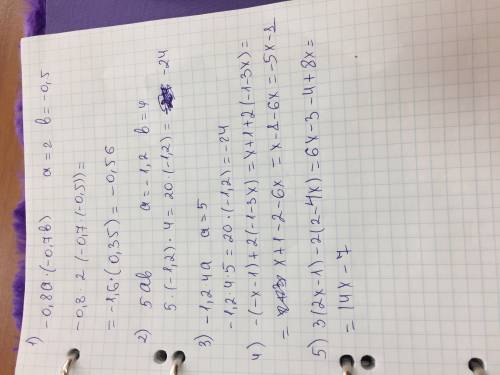 1) -0,8a·(-0,7b) a=2 b=-0,5
-0,8·2(-0,7·(-0,5))=
=-1,6·(0,35)=-0,56
2) 5ab a=-1,2 b=4
5·(-1,2)·4=20·(-1,2)= -24
3) -1,2·4a a=5
-1,2·4·5=20·(-1,2)=-24
4) -(-x-1)+2(-1-3x)=x+1+2(-1-3x)=
= x+1-2-6x=x-1-6x=-5x-1
5) 3(2x-1)-2(2-4x)=6x-3-4+8x=
=14x-7